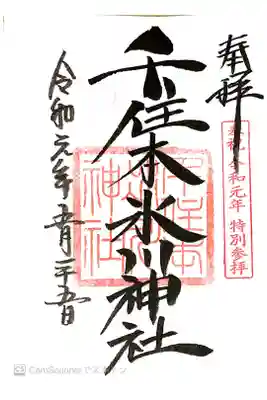 奉拝
奉祝 令和元年 特別参拝
千住本氷川神社
千住本
氷川
神社
令和元年五月二十五日
CamScanner でスキャン